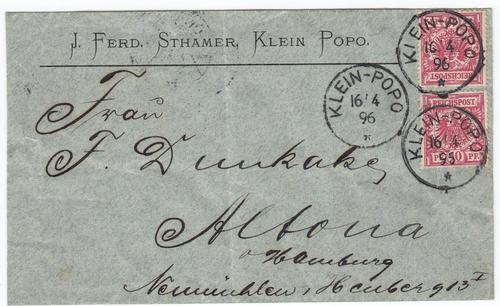 J. FERD. STHAMER, KLEIN POPO.
KLEIN-POPO
16/4
96
*
REICHSPOST
KLEIN-POPO
16/4
96
*
REICHSPOST
PF. 10 PF.
KLEIN-POPO
16/4
95
*
Frau
F.
Altona
Hamburg
Neumühlen,